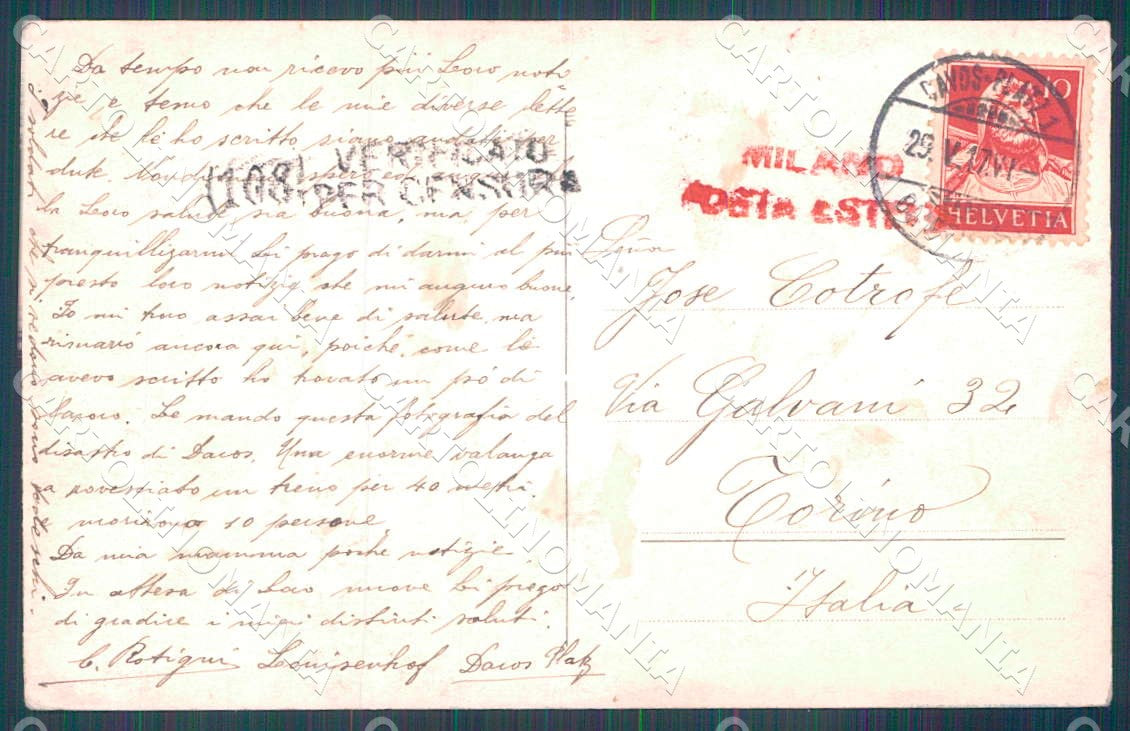 Da tempo non ricevo più Loro noti
zie e temo che le mie diverse lette
re che le ho scritto siano andate per
dute.
La Loro salute sia buona, ma per
tranquillizarmi La prego di darmi al più
presto loro notizie che mi auguro buone
Io mi trovo assai bene di salute ma
rimarrò ancora qui, poiché, come le
avevo scritto ho trovato un pó di
lavoro. Le mando questa fotografia del
disastro di Davos. Una enorme valanga
a rovesciato un treno per 40 metri
e morirono 10 persone
Da mia mamma poche notizie
In attesa di Loro nuove La prego
di gradire i miei distinti saluti.
C. Rotigni Louisenhof Davos Platz
I soldati che si vedono sono
1108 VERIFICATO
PER CENSURA
MILANO
POSTA ESTE
DAVOS-PLATZ 1
29. V. 17. VI
10
HELVETIA
Señor
Jose Cotrofe
Via Galvani 32
Torino
Italia
CARTOLINOMANIA